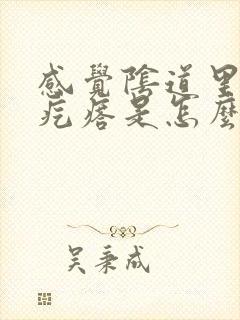 感覺陰道里
疙瘩是怎麼
吴秉成